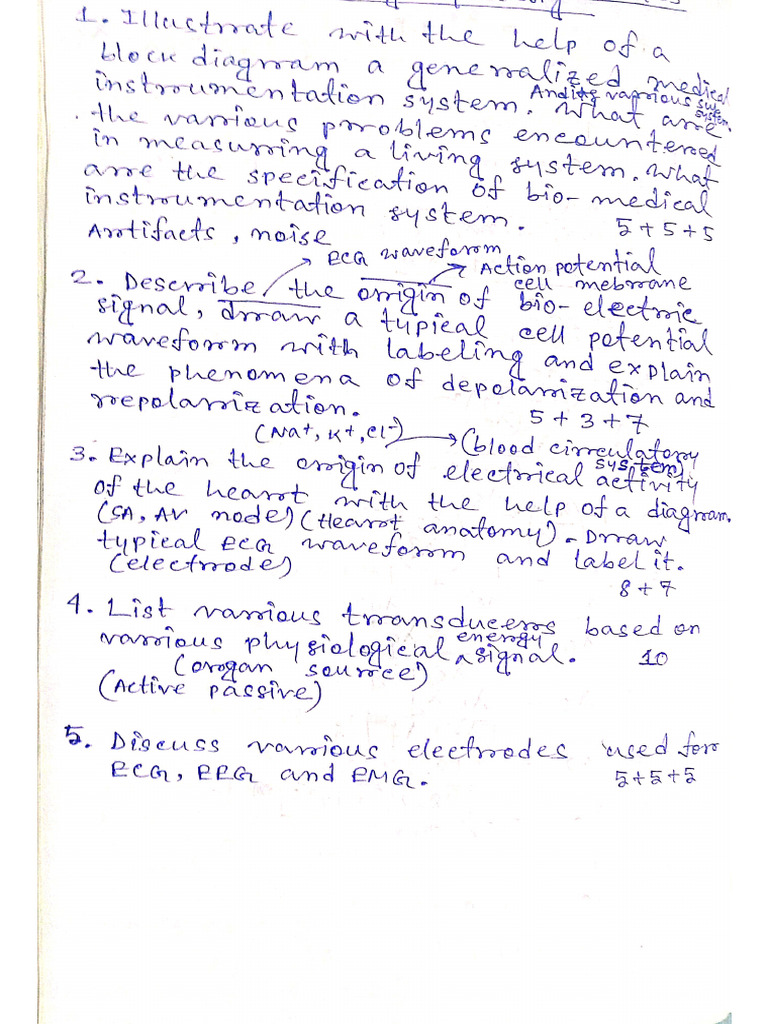 1. Illustrate with the help of a
block diagram a generalized medical
instrumentation system. What are
And its various sub
system.
the various problems encountered
in measuring a living system. What
are the specification of bio-medical
instrumentation system. 5+5+5
Artifacts, noise
→ ECG waveform
→ Action potential
cell mebrane
2. Describe the origin of bio-electric
signal, draw a typical cell potential
waveform with labeling and explain
the phenomena of depolarization and
repolarization. 5+3+7
(Na+, K+, Cl-) → (blood circulatory
system)
3. Explain the origin of electrical activity
of the heart with the help of a diagram.
(SA, AV node) (Heart anatomy). Draw
typical ECG waveform and label it.
(electrode)
8+7
4. List various transducers based on
various physiological energy signal. 10
(organ source)
(Active passive)
5. Discuss various electrodes used for
ECG, EEG and EMG. 5+5+5